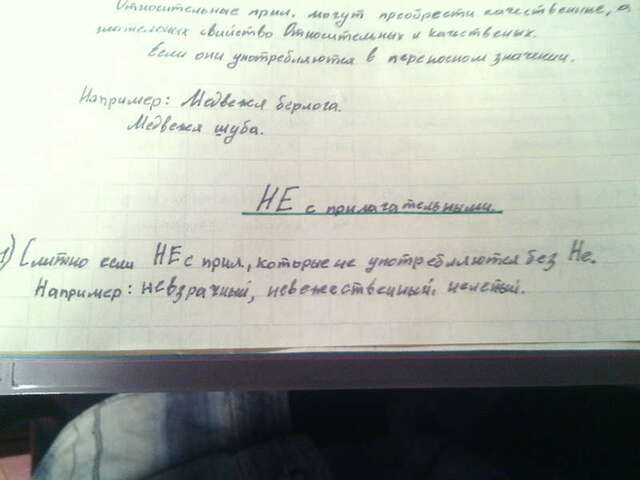 Относительные прил. могут преобрести качественные, а
свийство Относительных и качственых.
Если они употребляются в переносном значении.
Например: Медвежя берлога.
Медвежя шуба.
НЕ с прилагательными.
1) Слитно если НЕ с прил, которые не употребляются без Не.
Например: невзрачный, невежественный, нелепый.